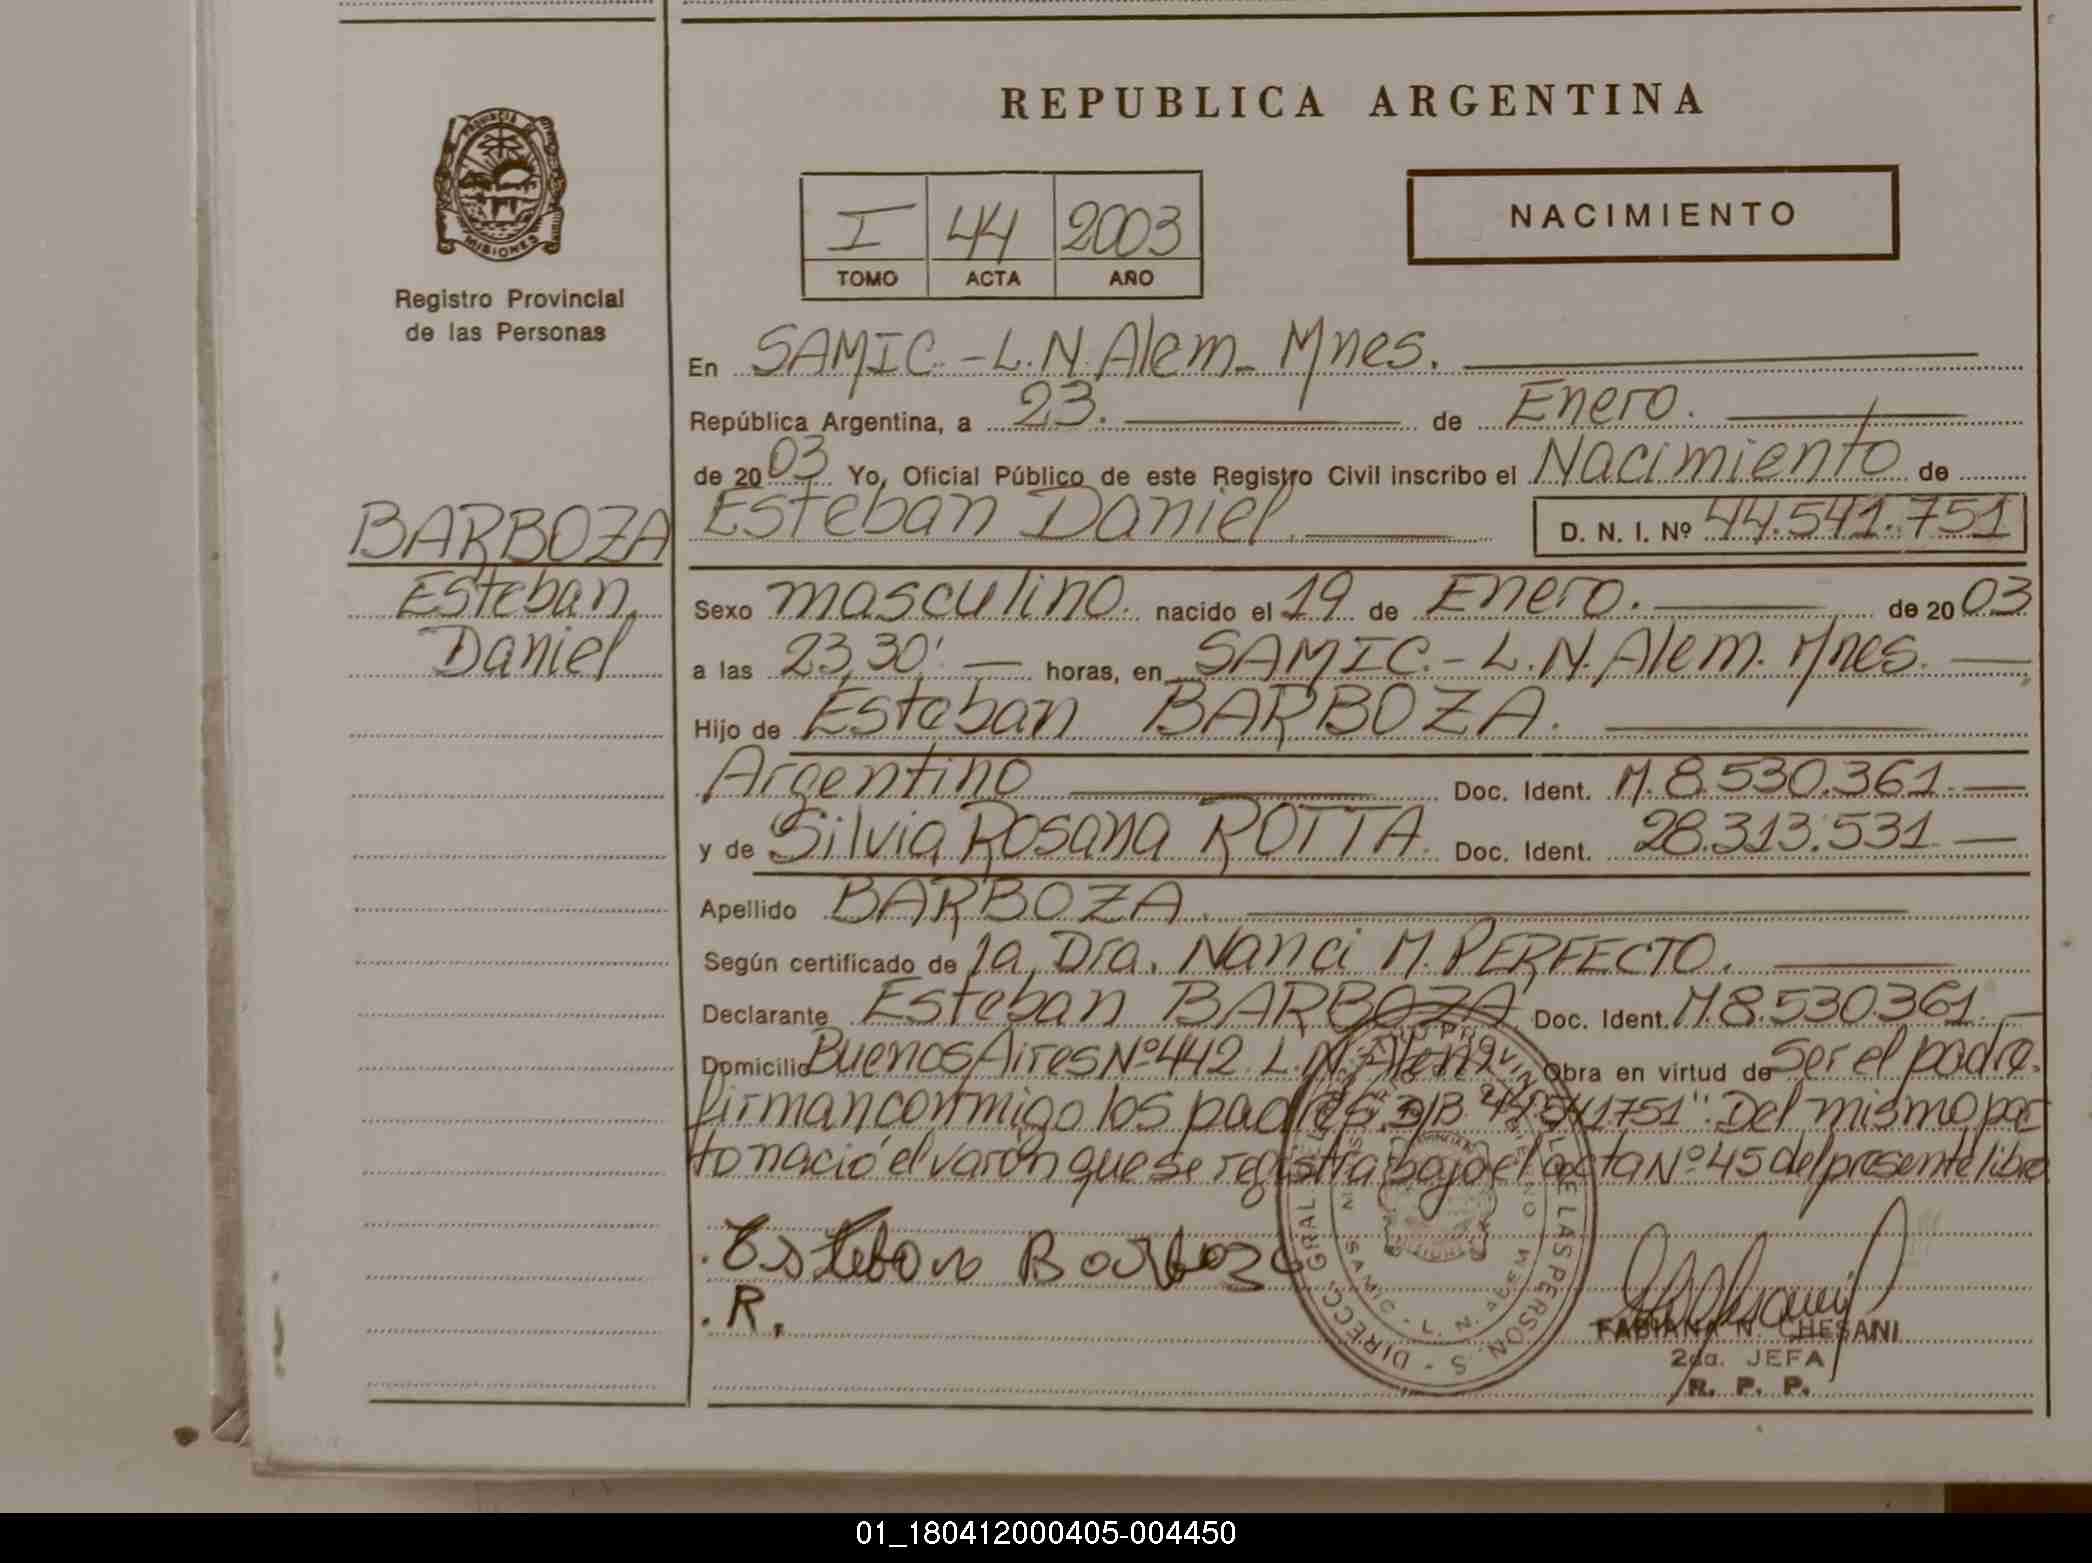 REPUBLICA ARGENTINA
PROVINCIA DE
MISIONES
Registro Provincial
de las Personas
I 44 2003
TOMO ACTA AÑO
NACIMIENTO
En SAMIC.-L.N.Alem- Mnes.
República Argentina, a 23. de Enero.
de 2003 Yo, Oficial Público de este Registro Civil inscribo el Nacimiento de
Esteban Daniel. D. N. I. Nº 44.541.751
BARBOZA
Esteban
Daniel
Sexo masculino. nacido el 19 de Enero. de 2003
a las 23,30' horas, en SAMIC.-L.N.Alem. Mnes.
Hijo de Esteban BARBOZA.
Argentino Doc. Ident. M.8.530.361
y de Silvia Rosana ROTTA. Doc. Ident. 28.313.531
Apellido BARBOZA.
Según certificado de la Dra. Nanci M. PERFECTO.
Declarante Esteban BARBOZA, Doc. Ident. M.8.530.361.
Domicilio Buenos Aires Nº 442 L.N. Alem Obra en virtud de ser el padre.
firman conmigo los padres. "44541751". Del mismo par
to nació el varón que se registra bajo el acta Nº 45 del presente libro
Esteban Barboza
R.
DIRECC. GRAL. DE LAS PERSON. S
SAMIC - L. N. ALEM
FABIANA N. CHESANI
2da. JEFA
R. P. P.
01_180412000405-004450